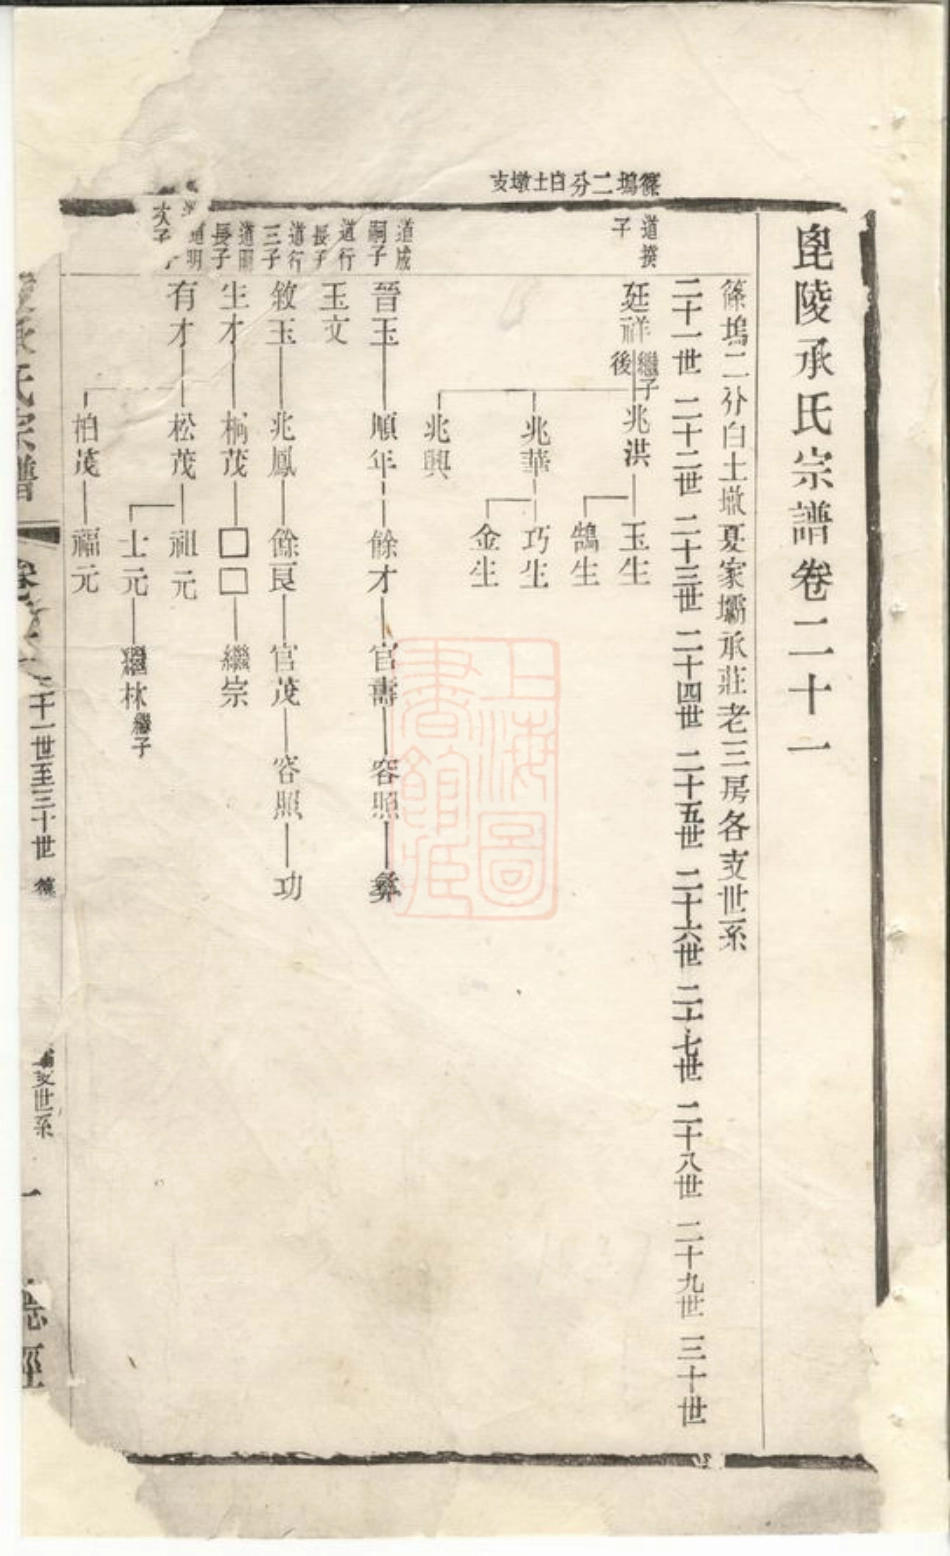 篠塢二分白土墩支
毘陵承氏宗譜卷二十一
篠塢二分白土墩夏家壩承莊老三房各支世系
二十一世 二十二世 二十三世 二十四世 二十五世 二十六世 二十七世 二十八世 二十九世 三十世
道揆子
廷祥 繼子後 兆洪 玉生
鵠生
兆華 巧生
金生
兆興
道成嗣子
晉玉 順年 餘才 官壽 容照 彝
道行長子
玉文
道行三子
敘玉 兆鳳 餘良 官茂 容照 功
長子
生才 楨茂 □□ 繼宗
有才 松茂 祖元
士元 繼林 繼子
次子
柏茂 福元
承氏宗譜
十一世至三十世 篠
支世系
一